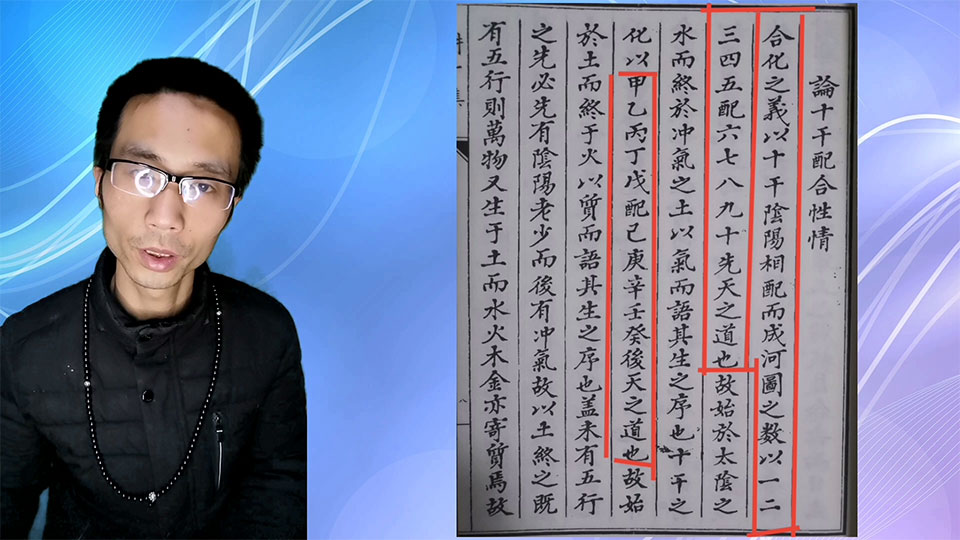 論十干配合性情
合化之義以十干陰陽相配而成河圖之數以一二
三四五配六七八九十先天之道也故始於太陰之
水而終於冲氣之土以氣而語其生之序也十干之
化以甲乙丙丁戊配己庚辛壬癸後天之道也故始
於土而終于火以質而語其生之序也蓋未有五行
之先必先有陰陽老少而後有冲氣故以土終之既
有五行則萬物又生于土而水火木金亦寄質焉故